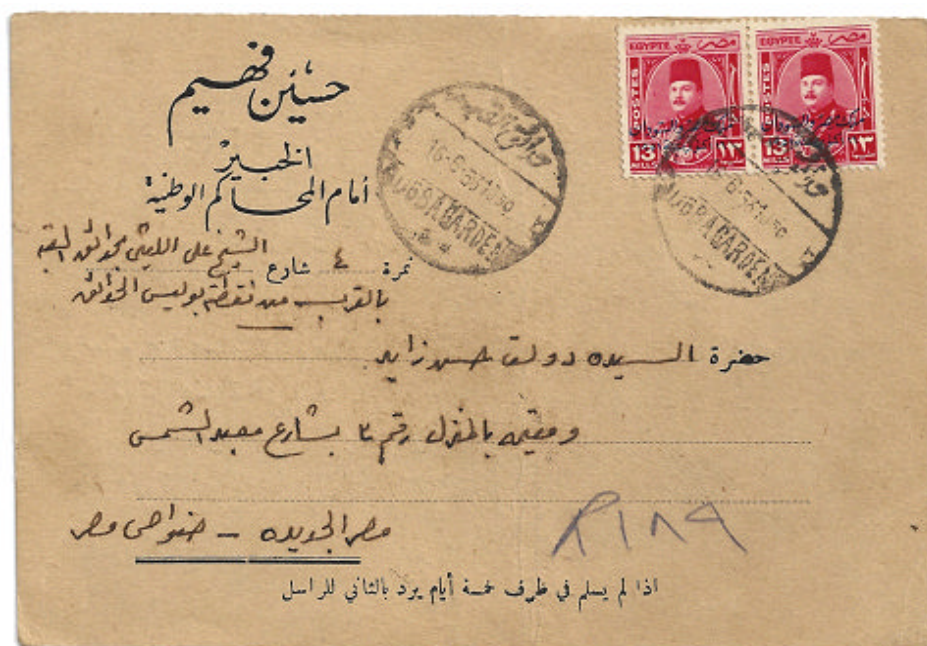 حسين فهيم
الخبير
أمام المحاكم الوطنية
نمرة ٤ شارع الشيخ على الليثى بحدائق القبه
بالقرب من نقطة بوليس الحدائق
EGYPTE مصر
POSTES
13 MILLS ١٣
EGYPTE مصر
POSTES
13 MILLS ١٣
حدائق القبه
KUBBA GARDENS
حدائق القبه
KUBBA GARDENS
حضرة السيده دولت حسن زايد
ومقيمه بالمنزل رقم ٢ بشارع معبد الشمس
مصر الجديده - ضواحى مصر
R ١٨٩
اذا لم يسلم في ظرف خمسة أيام يرد بالثاني للراسل